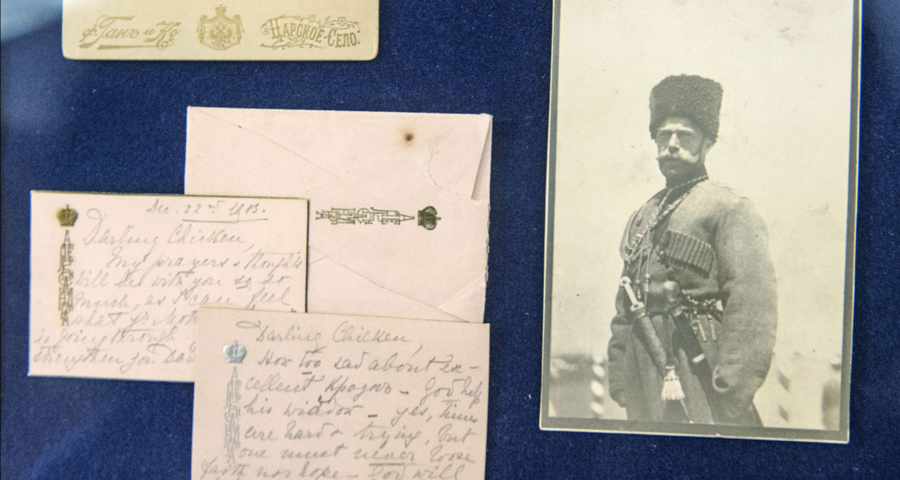 Ф. Ганъ и Ко
ЦАРСКОЕ-СЕЛО.
Dec. 22nd 1905.
Darling Chicken
My prayers & thoughts
will be with you so so
much, as I can feel
what yr. Moth
is going through
strengthen you
Darling Chicken,
How too sad about ex-
cellent
God help
his widow – yes, times
are hard & trying, but
one must never loose
faith nor hope – God will